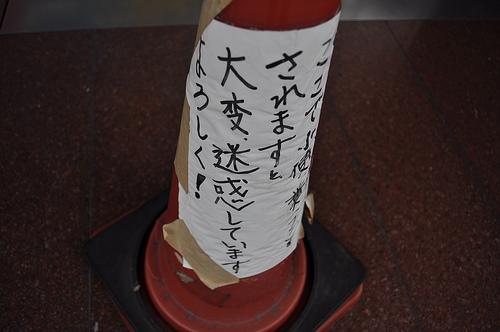 ここで小便等
されますと
大変、迷惑しています
よろしく！